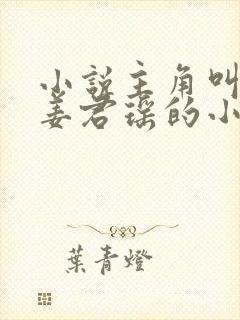 小說主角叫
姜君瑤的小
葉青燈